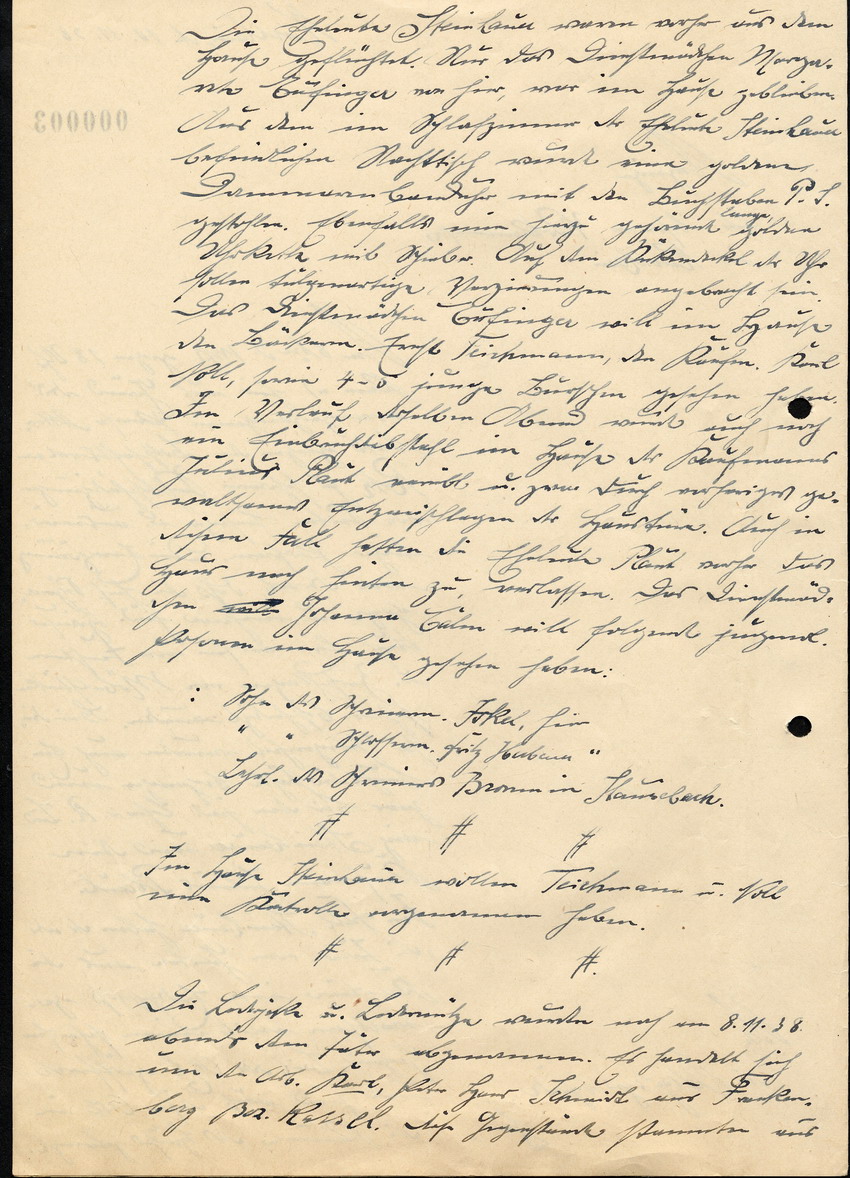 Die Eheleute Steinlauf waren vorher aus dem
Hause geflüchtet. Nur das Dienstmädchen Marga-
rete von hier, war im Hause geblieben.
Aus dem im Schlafzimmer der Eheleute
befindlichen Nachttisch wurde eine goldene
Dammenarmbanduhr mit den Buchstaben P. S.
gestohlen. Ebenfalls eine hierzu gehörende lange goldene
Uhrkette mit Schieber. Auf dem Rückendeckel der Uhr
sollen tulpenartige Verzierungen angebracht sein.
Das Dienstmädchen will im Hause
den Bäckerm. Ernst Teichmann, den Kaufm. Karl
Noll, sowie 4-5 junge Burschen gesehen haben.
Im Verlauf desselben Abend wurde auch noch
ein Einbruchdiebstahl im Hause des Kaufmanns
Julius Plaut verübt u. zwar durch vorheriges ge-
waltsames Entzweischlagen der Haustüre. Auch in
diesem Fall hatten die Eheleute Plaut vorher das
Haus nach hinten zu, verlassen. Das Dienstmäd-
chen Johanna will folgende jugendl.
Personen im Hause gesehen haben:
: Sohn des Schreinerm. hier
" " Schlosserm. Fritz "
Lehrl. des Schreiners Braun in
# # #
Im Hause wollen Teichmann u. Noll
eine Kontrolle vorgenommen haben.
# # #.
Die Lederjacke u. Ledermütze wurden noch am 8.11.38.
abends dem Täter abgenommen. Es handelt sich
um den Arb. Karl, Peter Hans Schmidt aus Franken-
berg Bez. Kassel. Diese Gegenstände stammten aus
000003